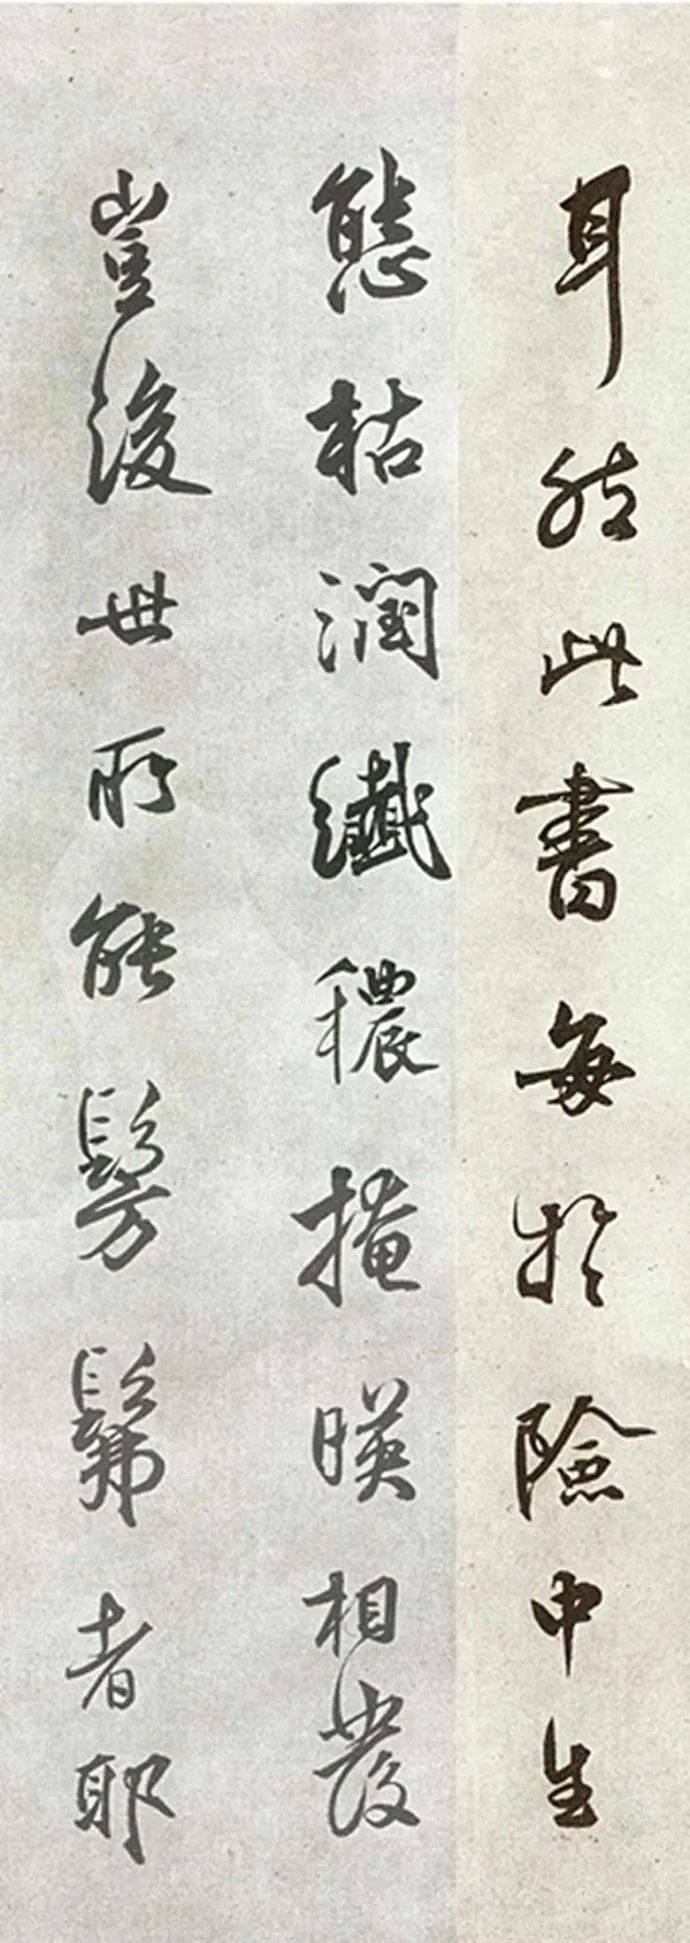 耳然此書每於險中生
態枯潤纖穠掩暎相發
豈後世所能髣髴者耶